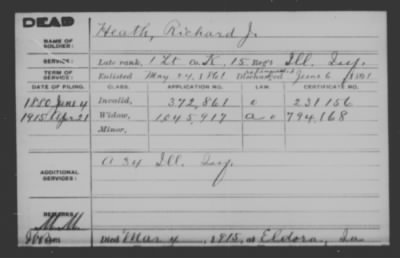 DEAD
NAME OF SOLDIER: Heath, Richard J.
SERVICE: Late rank, 1 Lt Co. K, 15 Reg't Ill. Inf.
TERM OF SERVICE: Enlisted May 24, 1861 Discharged June 6, 1861
DATE OF FILING. CLASS. APPLICATION NO. LAW. CERTIFICATE NO.
1880 June 4 Invalid, 372,861 231156
1915 Apr 21 Widow, 1045,917 794,168
Minor,
ADDITIONAL SERVICES: A 34 Ill. Inf.
REMARKS:
Died Mar 4, 1915, at Eldora, Ia